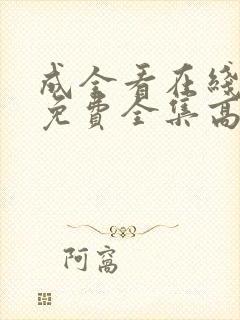 成全看在线
免费全集高
阿窝